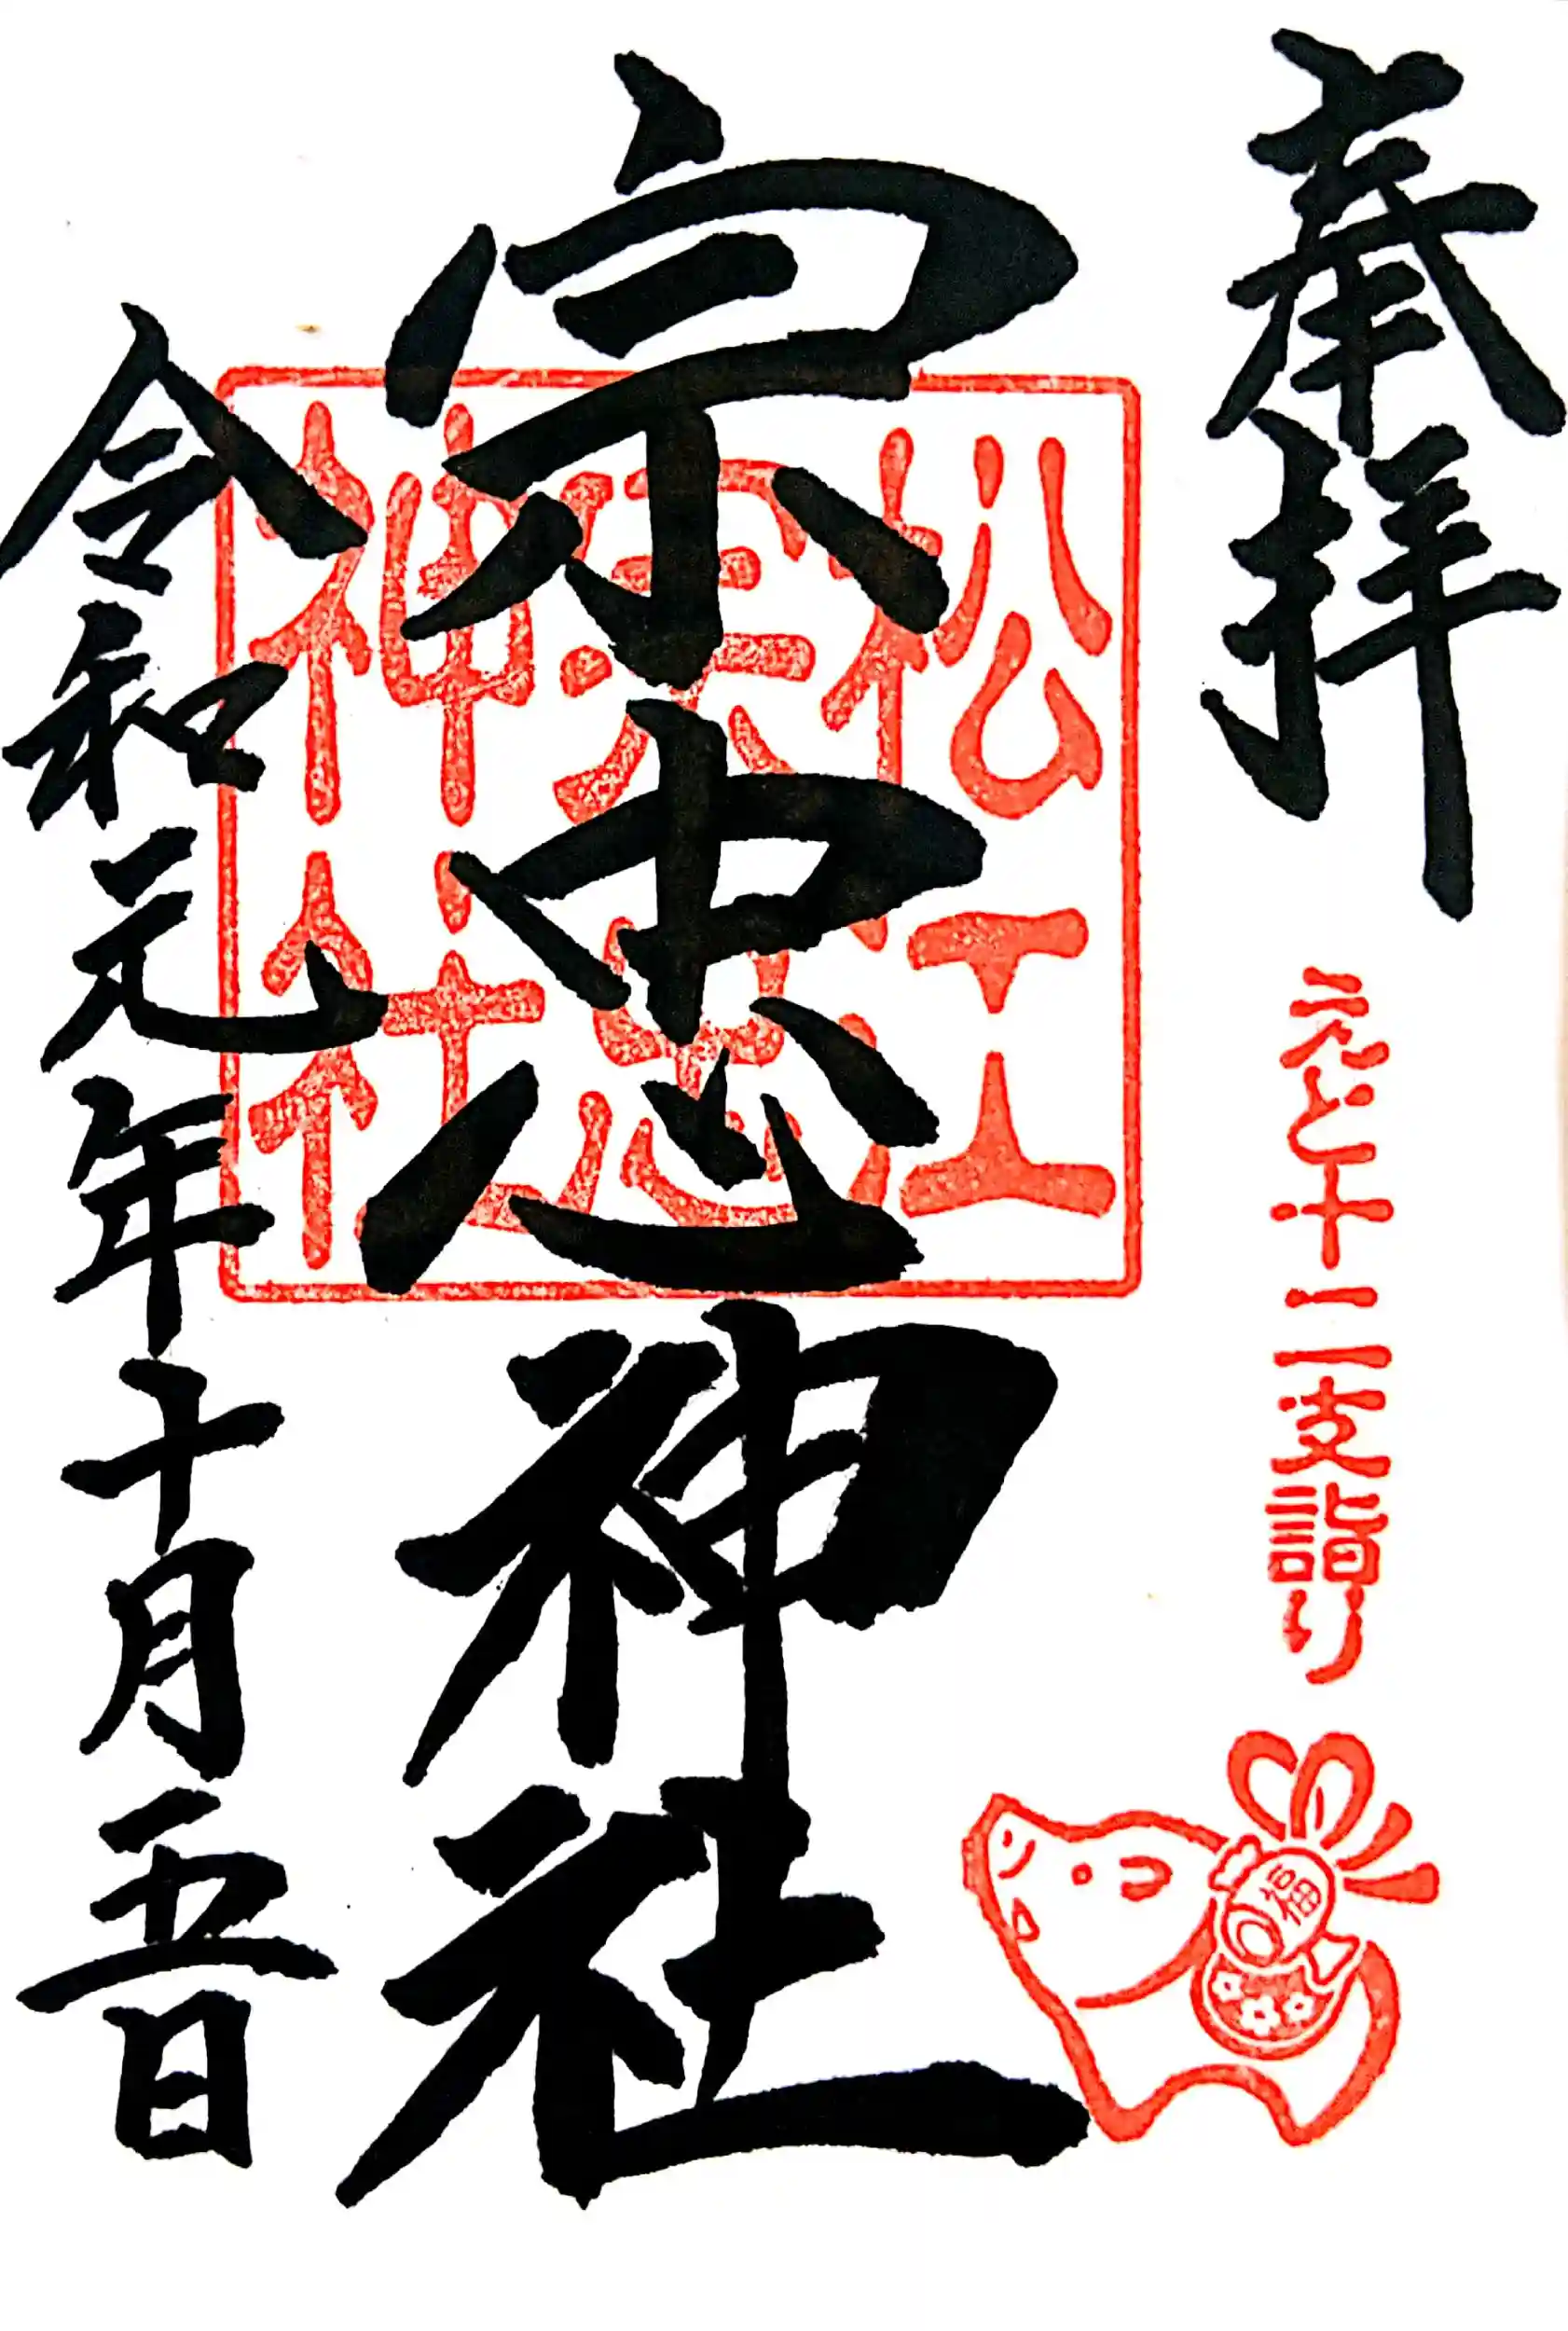 奉拝
えと十二支詣り
福
宗忠神社
松江
宗忠
神社
令和元年十月二五日